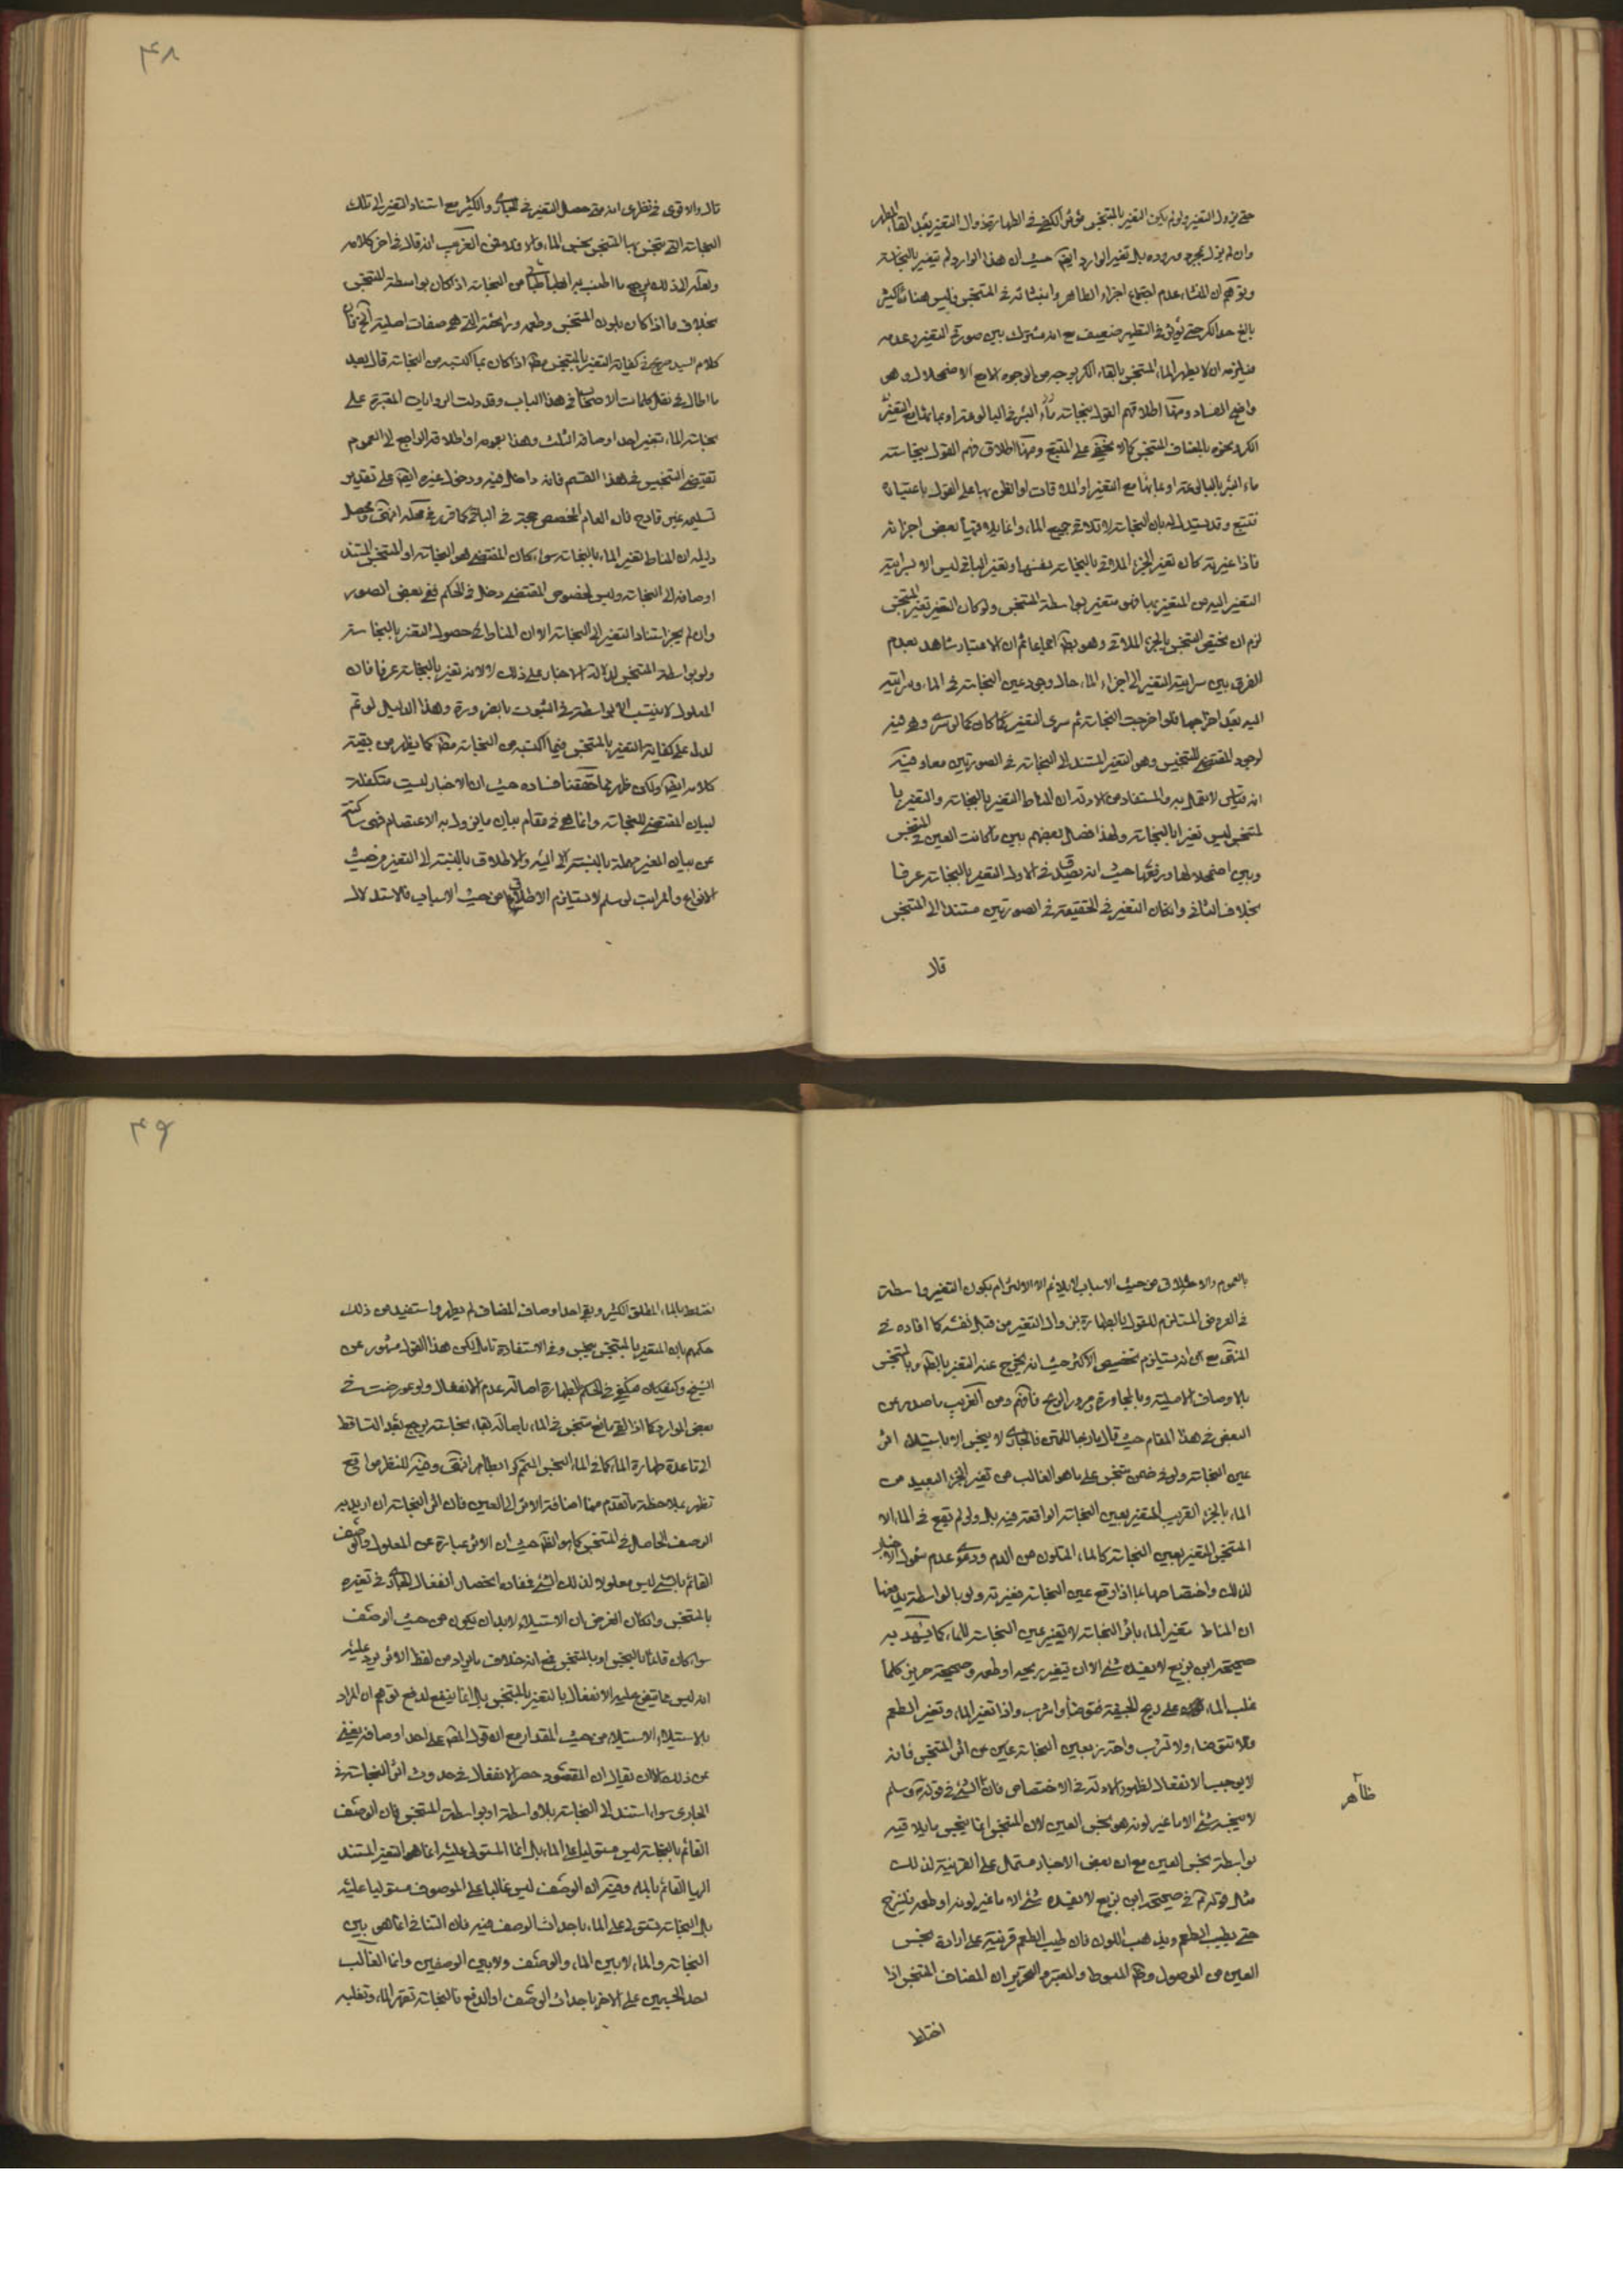 حتى يزول التغير ولو لم يكن التغير بالمتنجس مؤثرا لكفى في الطهارة زوال التغير بعد القاء المطهر
وان لم يزل بمجرد وروده بل تغير الوارد ايضا حيث ان هذا الوارد لم يتغير بالنجاسة
وتوهم ان المنشاء عدم اجتماع اجزاء الطاهر وانبثاثه في المتنجس وليس هنا ماء كثير
بالغ حد الكر حتى يؤثر في التطهير ضعيف مع انه مشترك بين صورتي التغير وعدمه
فيلزمه ان لا يطهر الماء المتنجس بالقاء الكر بوجه من الوجوه الا مع الاضمحلال وهو
واضح الفساد ومنها اطلاقهم القول بنجاسة ماء البئر في البالوعة او بما تغير
الكر ونحوه بالمضاف المتنجس كما لا يخفى على المتتبع ومنها اطلاق قولهم القول بنجاسة
ماء البئر بالبالوعة او بمائها مع التغير او الملاقات او الظن بها على القول باعتباره
فتتبع وقد يستدل له بان النجاسة لا تلاقي جميع الماء وانما يلاقيها بعض اجزائه
فاذا غيرته كان تغير الجزء الملاقي بالنجاسة نفسها وتغير الباقي ليس الا بسراية
التغير اليه من المتغير بها فهو متغير بواسطة المتنجس ولو كان التغير بغير المتنجس
لزم ان يختص التنجس بالجزء الملاقي وهو بط اجماعا ثم ان الاعتبار شاهد بعدم
الفرق بين سراية التغير الى اجزاء الماء حال وجود عين النجاسة في الماء وسرايته
اليه بعد اخراجها فلو اخرجت النجاسة ثم سرى التغير كان كما لو سرى وهي فيه
لوجود المقتضي للتنجيس وهو التغير المستند الى النجاسة في الصورتين معا وفيه
انه قياس لا نقول به والمستفاد من الادلة ان المناط التغير بالنجاسة والتغير با
لمتنجس ليس تغيرا بالنجاسة ولهذا فصل بعضهم بين ما كانت العين في المتنجس
وبين اضمحلالها ورفعها حيث انه يصدق في الاول التغير بالنجاسة عرفا
بخلاف الثاني وان كان التغير في الحقيقة في الصورتين مستندا الى المتنجس
قال
۴۸
قال والاقوى في نظري انه متى حصل التغير في الجاري والكثير مع استناد التغير الى تلك
النجاسة التي تنجس بها المتنجس نجس الماء والا فلا ومن الغريب انه قال في اخر كلامه
ولعله لذلك يرجع ما اطنب به من النجاسة اذا كان بواسطة المتنجس
بخلاف ما اذا كان بلون المتنجس وطعمه ورائحته التي هي صفات اصلية الخ فان
كلام السيد صريح في كفاية التغير بالمتنجس مط اذا كان بما اكتسبه من النجاسة قال بعد
ما اطال في نقل كلمات الاصحاب في هذا الباب وقد دلت الروايات المعتبرة على
نجاسة الماء بتغير احد اوصافه الثلث وهذا بعمومه او اطلاقه الراجع الى العموم
تقتضي التنجيس في هذا القسم فانه داخل فيه ودخول غيره ايضا على تقدير
تسليمه غير قادح فان العام المخصص حجة في الباقي كما قرر في محله انتهى ومحصل
دليله ان المناط تغير الماء بالنجاسة سواء كان المقتضي هو النجاسة او المتنجس المستند
اوصافه الى النجاسة وليس لخصوص المقتضي دخل في الحكم ففي بعض الصور
وان لم يجز استناد التغير الى النجاسة الا ان المناط حصول التغير بالنجاسة
ولو بواسطة المتنجس لدلالة الاخبار على ذلك لا لانه تغير بالنجاسة عرفا فان
المعلول لا ينتسب الا بواسطة في الثبوت بالضرورة وهذا الدليل لو تم
لدل على كفاية التغير بالمتنجس فيما اكتسبه من النجاسة مط كما يظهر من بقية
كلامه ايضا ولكن ظهر مما حققنا فساده حيث ان الاخبار ليست متكفلة
لبيان المقتضي للنجاسة وانما هي في مقام بيان ما يزول به الاعتصام فهي ساكتة
عن بيان المغير مهملة بالنسبة اليه والاطلاق بالنسبة الى التغير من حيث
الانواع والمراتب لو سلم لا يستلزم الاطلاق من حيث الاسباب فالاستدلال
بالعموم والاطلاق من حيث الاسباب لا يلائم الا الالتزام بكون التغير واسطة
في العروض المستلزم للقول بالطهارة بزوال التغير من قبل نفسه كما افاده في
المنتهى مع انه يستلزم تخصيص الاكثر حيث انه يخرج عنه التغير بالطاهر وبالمتنجس
بالاوصاف الاصلية وبالمجاورة ومرور الريح فافهم ومن الغريب ما صدر عن
البعض في هذا المقام حيث قال مازجا للمتن فالجاري لا ينجس الا باستيلاء اثر
عين النجاسة ولو في ضمن متنجس على ما هو الغالب من تغير الجزء البعيد من
الماء بالجزء القريب المتغير بعين النجاسة الواقعة فيه بل ولو لم تقع في الماء الا
المتنجس المتغير بعين النجاسة كالماء المتلون من الدم ودعوى عدم شمول الاخبار
لذلك واختصاصها بما اذا وقع عين النجاسة فغيرته ولو بالواسطة يدفعها
ان المناط تغير الماء باثر النجاسة لا تغير عين النجاسة للماء كما يشهد به
صحيحة ابن بزيع لا يفسده شئ الا ان يتغير ريحه او طعمه وصحيحة حريز كلما
غلب الماء على ريح الجيفة فتوضأ واشرب واذا تغير الماء وتغير الطعم
فلا تتوضاء ولا تشرب واحترز بعين النجاسة عن اثر المتنجس فانه
لا يوجب الانفعال لظهور الادلة في الاختصاص فان الشئ في قوله ص وسلم
ظاهر
لا ينجسه شئ الا ما غير لونه هو نجس العين لان المتنجس انما ينجس ما يلاقيه
بواسطة نجس العين مع ان بعض الاخبار مشتمل على القرينة لذلك
مثل قوله ع في صحيحة ابن بزيع لا يفسده شئ الا ما غير لونه او طعمه فينزح
حتى يطيب الطعم ويذهب اللون فان طيب الطعم قرينة على ارادة نجس
العين من الموصول وظ المبسوط والمعتبر والتحرير ان المضاف المتنجس اذا
اختلط
۴۹
اختلط بالماء المطلق الكثير وبقي احد اوصاف المضاف لم يطهر واستفيد من ذلك
حكمهم بان المتغير بالمتنجس نجس وفي الاستفادة تامل لكن هذا القول مشهور عن
الشيخ وكيف كان فيكفي في الحكم بالطهارة اصالة عدم الانفعال ولو عورضت في
بعض الموارد كما اذا القي مائع متنجس في الماء باصالة بقاء نجاسته يرجع بعد التساقط
الى قاعدة طهارة الماء كما في الماء النجس المتمم كرا بطاهر انتهى وفيه للنظر مواقع
تظهر بملاحظة ما تقدم منها اضافة الاثر الى العين فان اثر النجاسة ان اريد به
الوصف الحاصل في المتنجس كما هو الظ حيث ان الاثر عبارة عن المعلول والوصف
القائم بالشئ ليس معلولا لذلك الشئ ففاده انحصار انفعال الجاري في تغيره
بالمتنجس وان كان الغرض ان الاستيلاء لا بد ان يكون من حيث الوصف
سواء كان قائما بالنجس او بالمتنجس فمع انه خلاف ما يراد من لفظ الاثر يرد عليه
انه ليس مما يتفرع عليه الانفعال بالتغير بالمتنجس بل انما ينفع لدفع توهم ان المراد
بالاستيلاء الاستيلاء من حيث المقدار مع ان قول المص على احد اوصافه يغني
عن ذلك الا ان يقال ان المقصود حصر الانفعال في حدوث اثر النجاسة في
الجاري سواء استند الى النجاسة بلا واسطة او بواسطة المتنجس فان الوصف
القائم بالنجاسة ليس مستوليا على الماء بل انما المستولي عليه انما هو التغير المستند
اليها القائم بالماء وفيه ان الوصف ليس غالبا على الموصوف مستوليا عليه
بل النجاسة تستولي على الماء باحداث الوصف فيه فان التنافي انما هو بين
النجاسة والماء لا بين الماء والوصف ولا بين الوصفين وانما الغالب
احد الجسمين على الاخر باحداث الوصف او الدفع فالنجاسة تقهر الماء وتغلبه